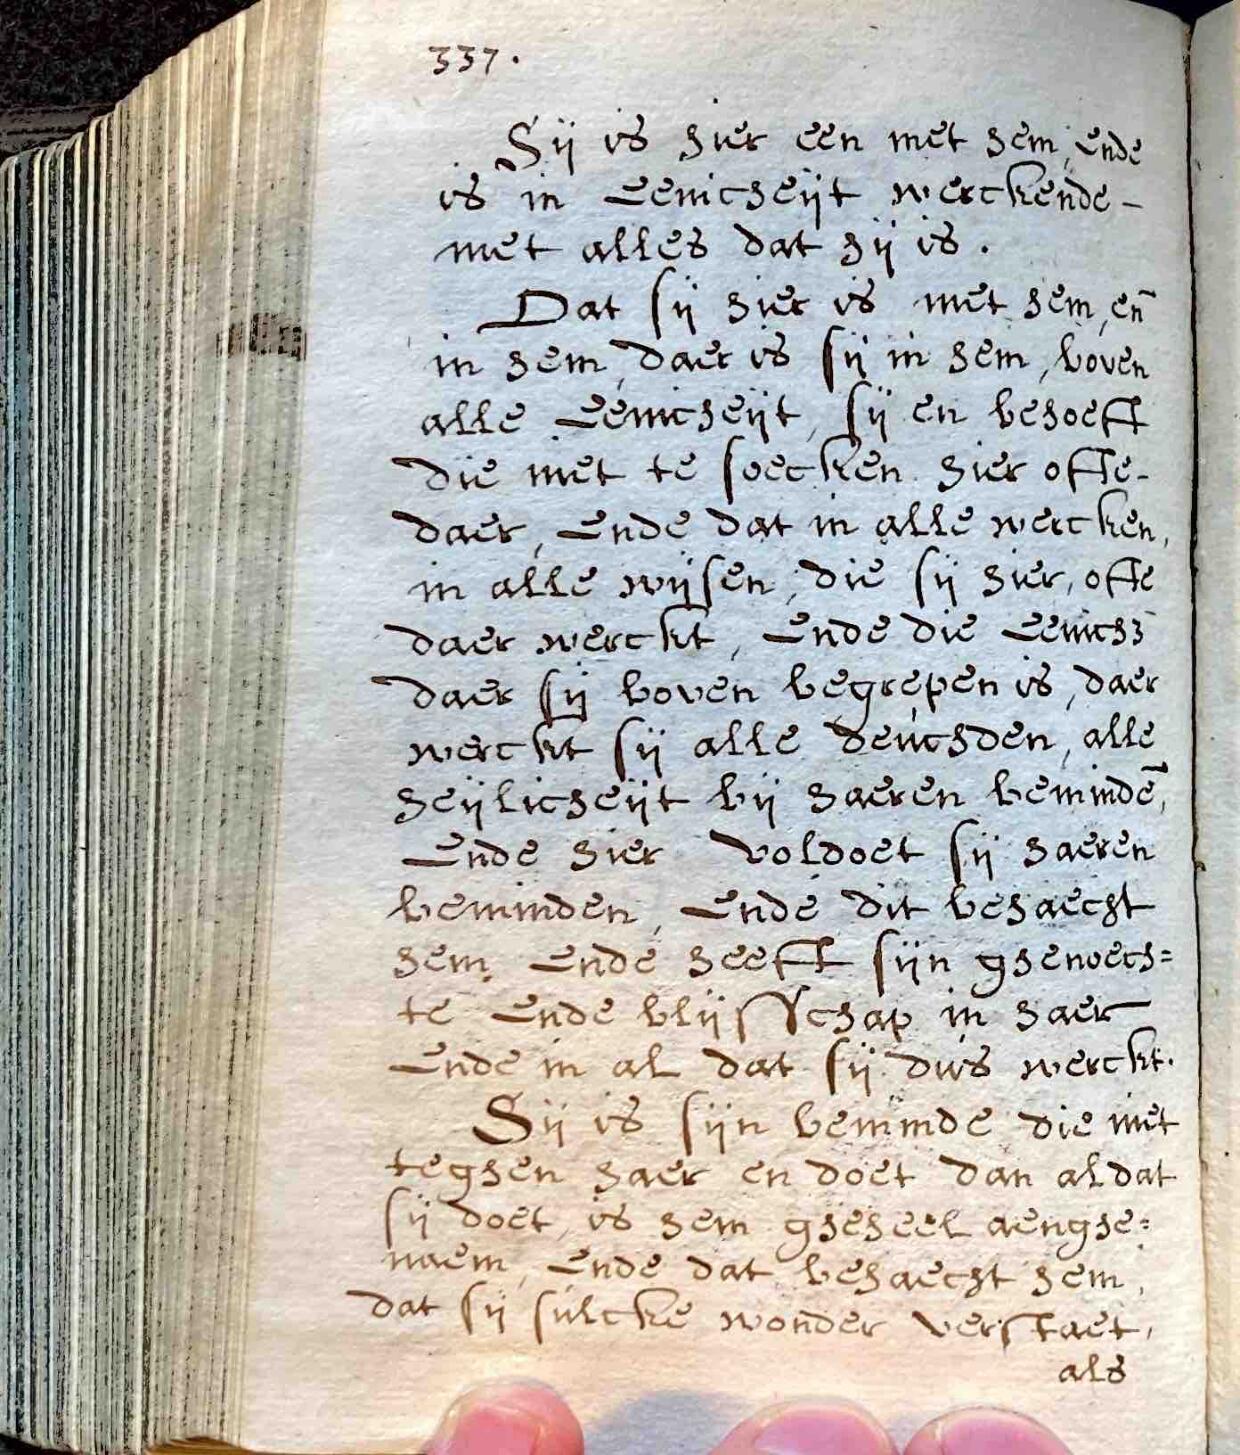 337.
Sij is hier een met hem, ende
is in Eenicheijt werckende -
met alles dat sij is.
Dat sij hier is met hem, en̄
in hem, daer is sij in hem, boven
alle Eenicheijt, sij en behoeft
die niet te soecken hier ofte-
daer, Ende dat in alle wercken,
in alle wijsen, die sij hier, ofte
daer werckt, Ende die Eenich3
daer sij boven begrepen is, daer
werckt sij alle deuchden, alle
heijlicheijt bij haeren beminde̅,
Ende hier voldoet sij haeren
beminden, Ende dit behaecht
hem, Ende heeft sijn ghenoech=
te Ende blijsschap in haer
Ende in al dat sij dus werckt.
Sij is sijn beminde die niet
teghen haer en doet dan al dat
sij doet, is hem gheheel aenghe=
naem, Ende dat behaecht hem,
dat sij sulcke wonder verstaet,
als